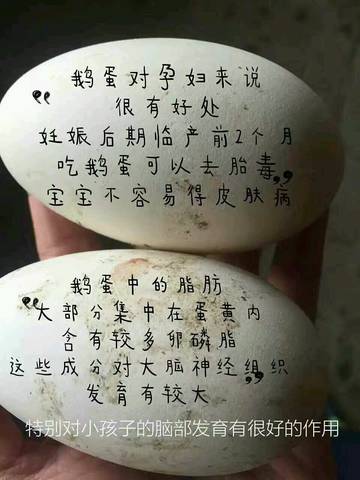 鹅蛋对孕妇来说
很有好处
妊娠后期临产前2个月
吃鹅蛋可以去胎毒
宝宝不容易得皮肤病
鹅蛋中的脂肪
大部分集中在蛋黄内
含有较多卵磷脂
这些成分对大脑神经组织
发育有较大
特别对小孩子的脑部发育有很好的作用